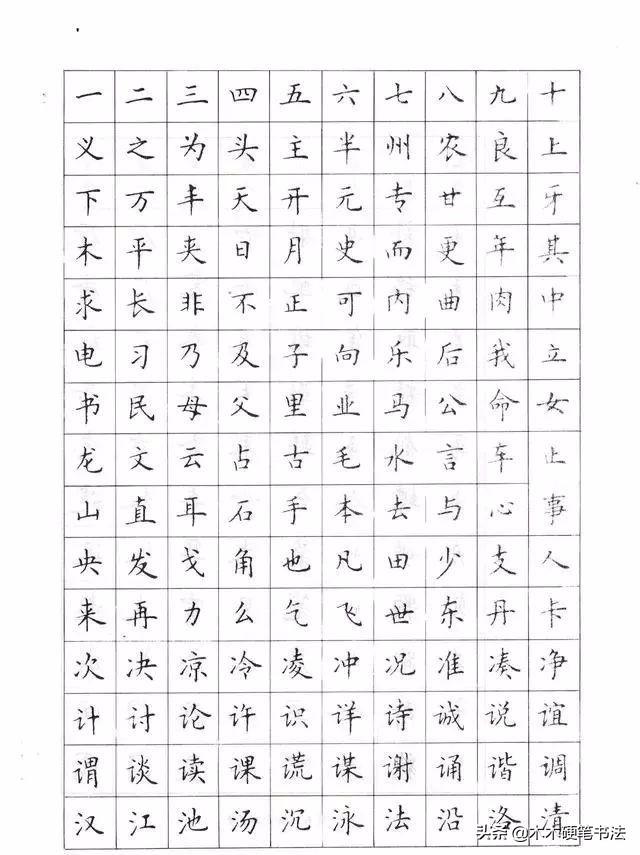 一 二 三 四 五 六 七 八 九 十
义 之 为 头 主 半 州 农 良 上
下 万 丰 天 开 元 专 甘 互 牙
木 平 夹 日 月 史 而 更 年 其
求 长 非 不 正 可 内 曲 肉 中
电 习 乃 及 子 向 乐 后 我 立
书 民 母 父 里 业 马 公 命 女
龙 文 云 占 古 毛 水 言 车 止
山 直 耳 石 手 本 去 与 心 事
央 发 戈 角 也 凡 田 少 支 人
来 再 力 么 气 飞 世 东 丹 卡
次 决 凉 冷 凌 冲 况 准 凑 净
计 讨 论 许 识 详 诗 诚 说 谊
谓 谈 读 课 谎 谋 谢 诵 谐 调
汉 江 池 汤 沉 泳 法 沿 洛 清
头条 @木木硬笔书法